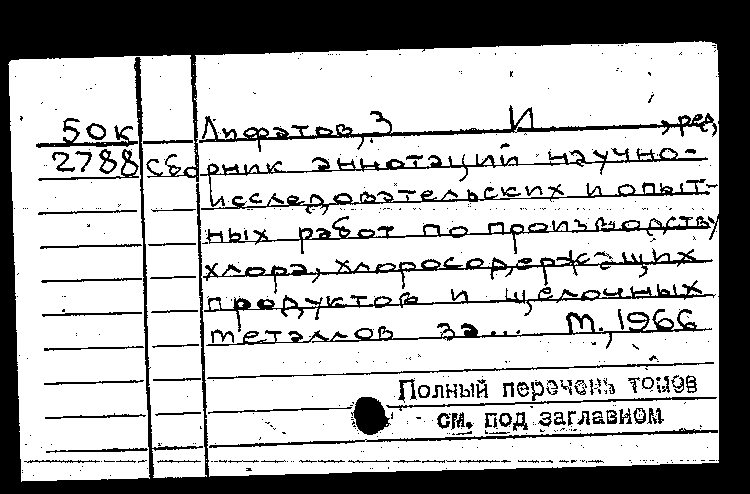 50к Лифатов, З И , ред.
2788 Сборник аннотаций научно-
исследовательских и опыт-
ных работ по производству
хлора, хлоросодержащих
продуктов и щелочных
металлов за... М., 1966
Полный перечень томов
см. под заглавием